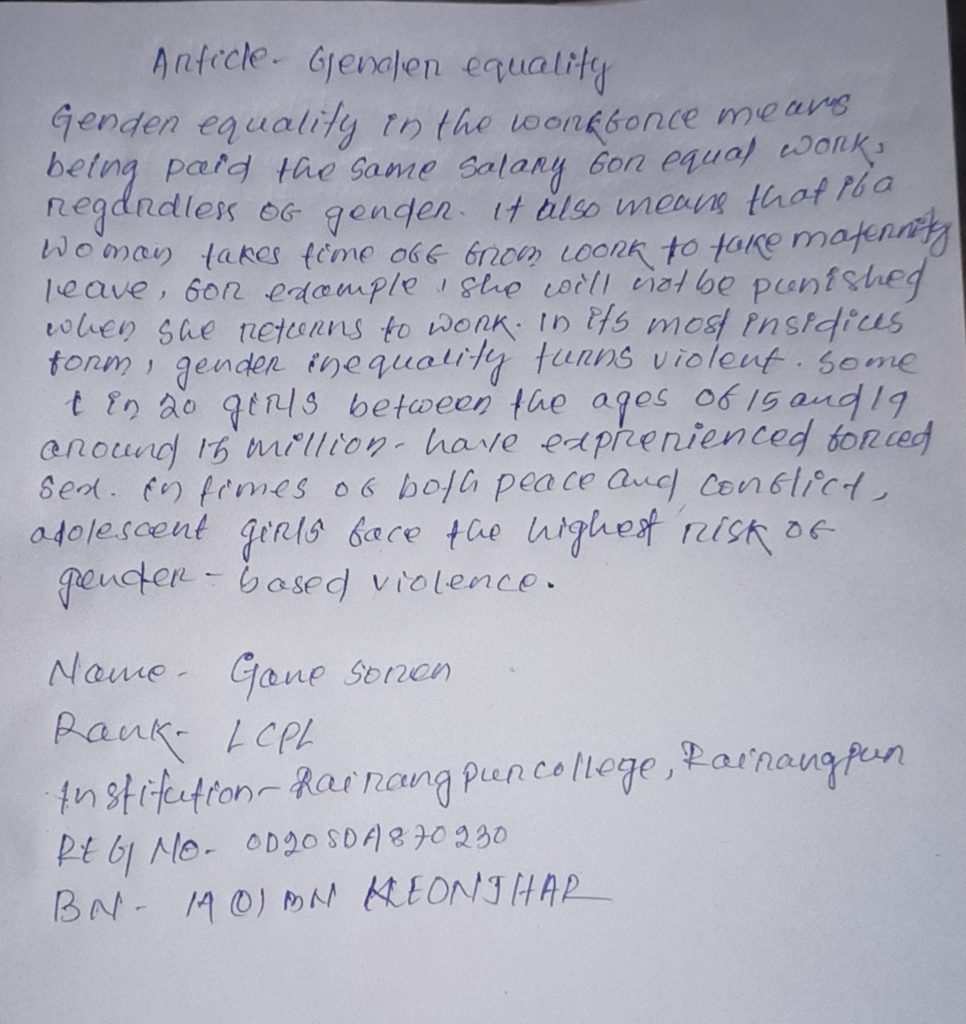 Article- Gender equality
Gender equality in the workforce means
being paid the same salary for equal work,
regardless of gender. it also means that if a
woman takes time off from work to take maternity
leave, for example, she will not be punished
when she returns to work. in its most insidius
form, gender inequality turns violent. some
1 in 20 girls between the ages of 15 and 19
around 15 million- have exprerienced forced
sex. in times of both peace and conflict,
adolescent girls face the highest risk of
gender-based violence.
Name- Gane soren
Rank- LCPL
Institution- Rairangpur college, Rairangpur
REG NO- OD20SDA870230
BN- 1 (O) BN KEONJHAR